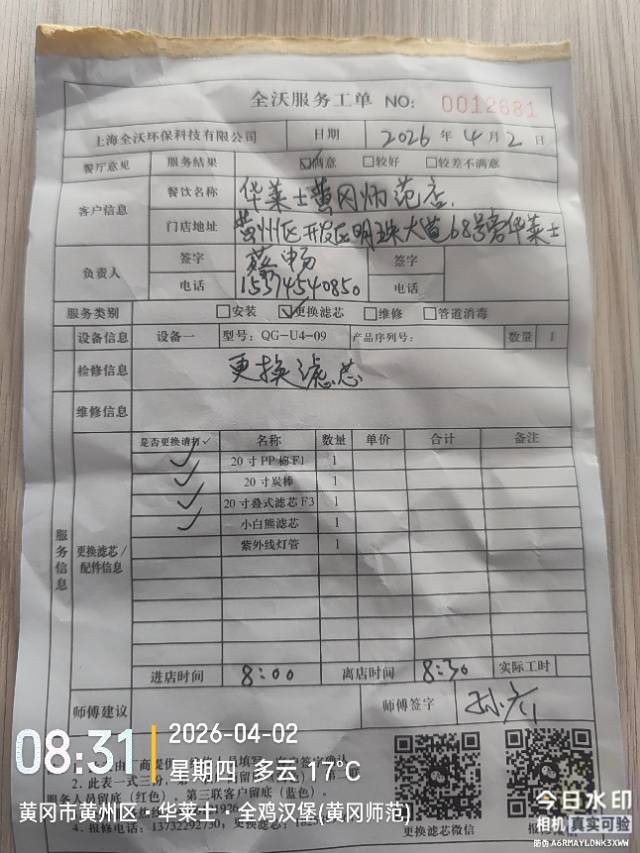 全沃服务工单 NO: 0012681
上海全沃环保科技有限公司 日期 2026 年 4 月 2 日
餐厅意见 服务结果 ☑满意 □较好 □较差不满意
客户信息 餐饮名称 华莱士黄冈师范店
门店地址 黄州区开发区明珠大道68号旁华莱士
负责人 签字 蔡畅 签字
电话 15374540850 电话
服务类别 □安装 ☑更换滤芯 □维修 □管道消毒
设备信息 设备一 型号: QG-U4-09 产品序列号: 数量 1
检修信息 更换滤芯
维修信息
服务信息
更换滤芯/配件信息
是否更换请打✓ 名称 数量 单价 合计 备注
✓ 20寸PP棉F1 1
✓ 20寸炭棒 1
✓ 20寸叠式滤芯F3 1
✓ 小白熊滤芯 1
紫外线灯管 1
进店时间 8:00 离店时间 8:30 实际工时
师傅建议 师傅签字
2. 此表一式三份,
服务人员留底(红色)。第三联客户留底(蓝色)。
4. 报修电话: 13732292730,
更换滤芯微信
08:31
2026-04-02
星期四 多云 17°C
黄冈市黄州区·华莱士·全鸡汉堡(黄冈师范)
今日水印
相机 真实可验
防伪 A6RMAYLDNK3XWW